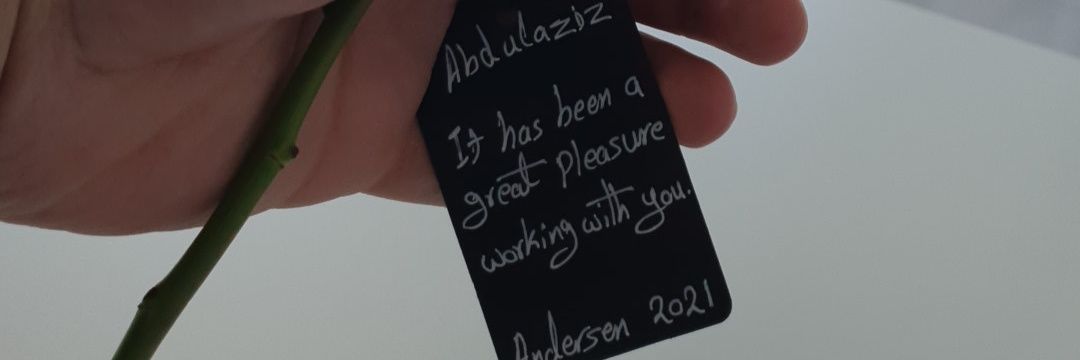 Abdulaziz
It has been a
great pleasure
working with you.
Andersen 2021